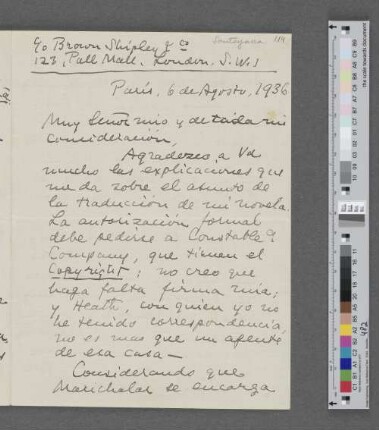 c/o Brown Shipley & Co
123, Pall Mall, London, S.W.1
París, 6 de Agosto, 1936
Muy Señor mío y de toda mi
consideración,
Agradezco a Vd.
mucho las explicaciones que
me da sobre el asunto de
la traducción de mi novela.
La autorización formal
debe pedirse a Constable &
Company, que tienen el
Copyright; no creo que
haga falta firma mía;
y Heath, con quien yo no
he tenido correspondencia,
no es mas que un agente
de esa casa—
Considerando que
Marichalar se encarga